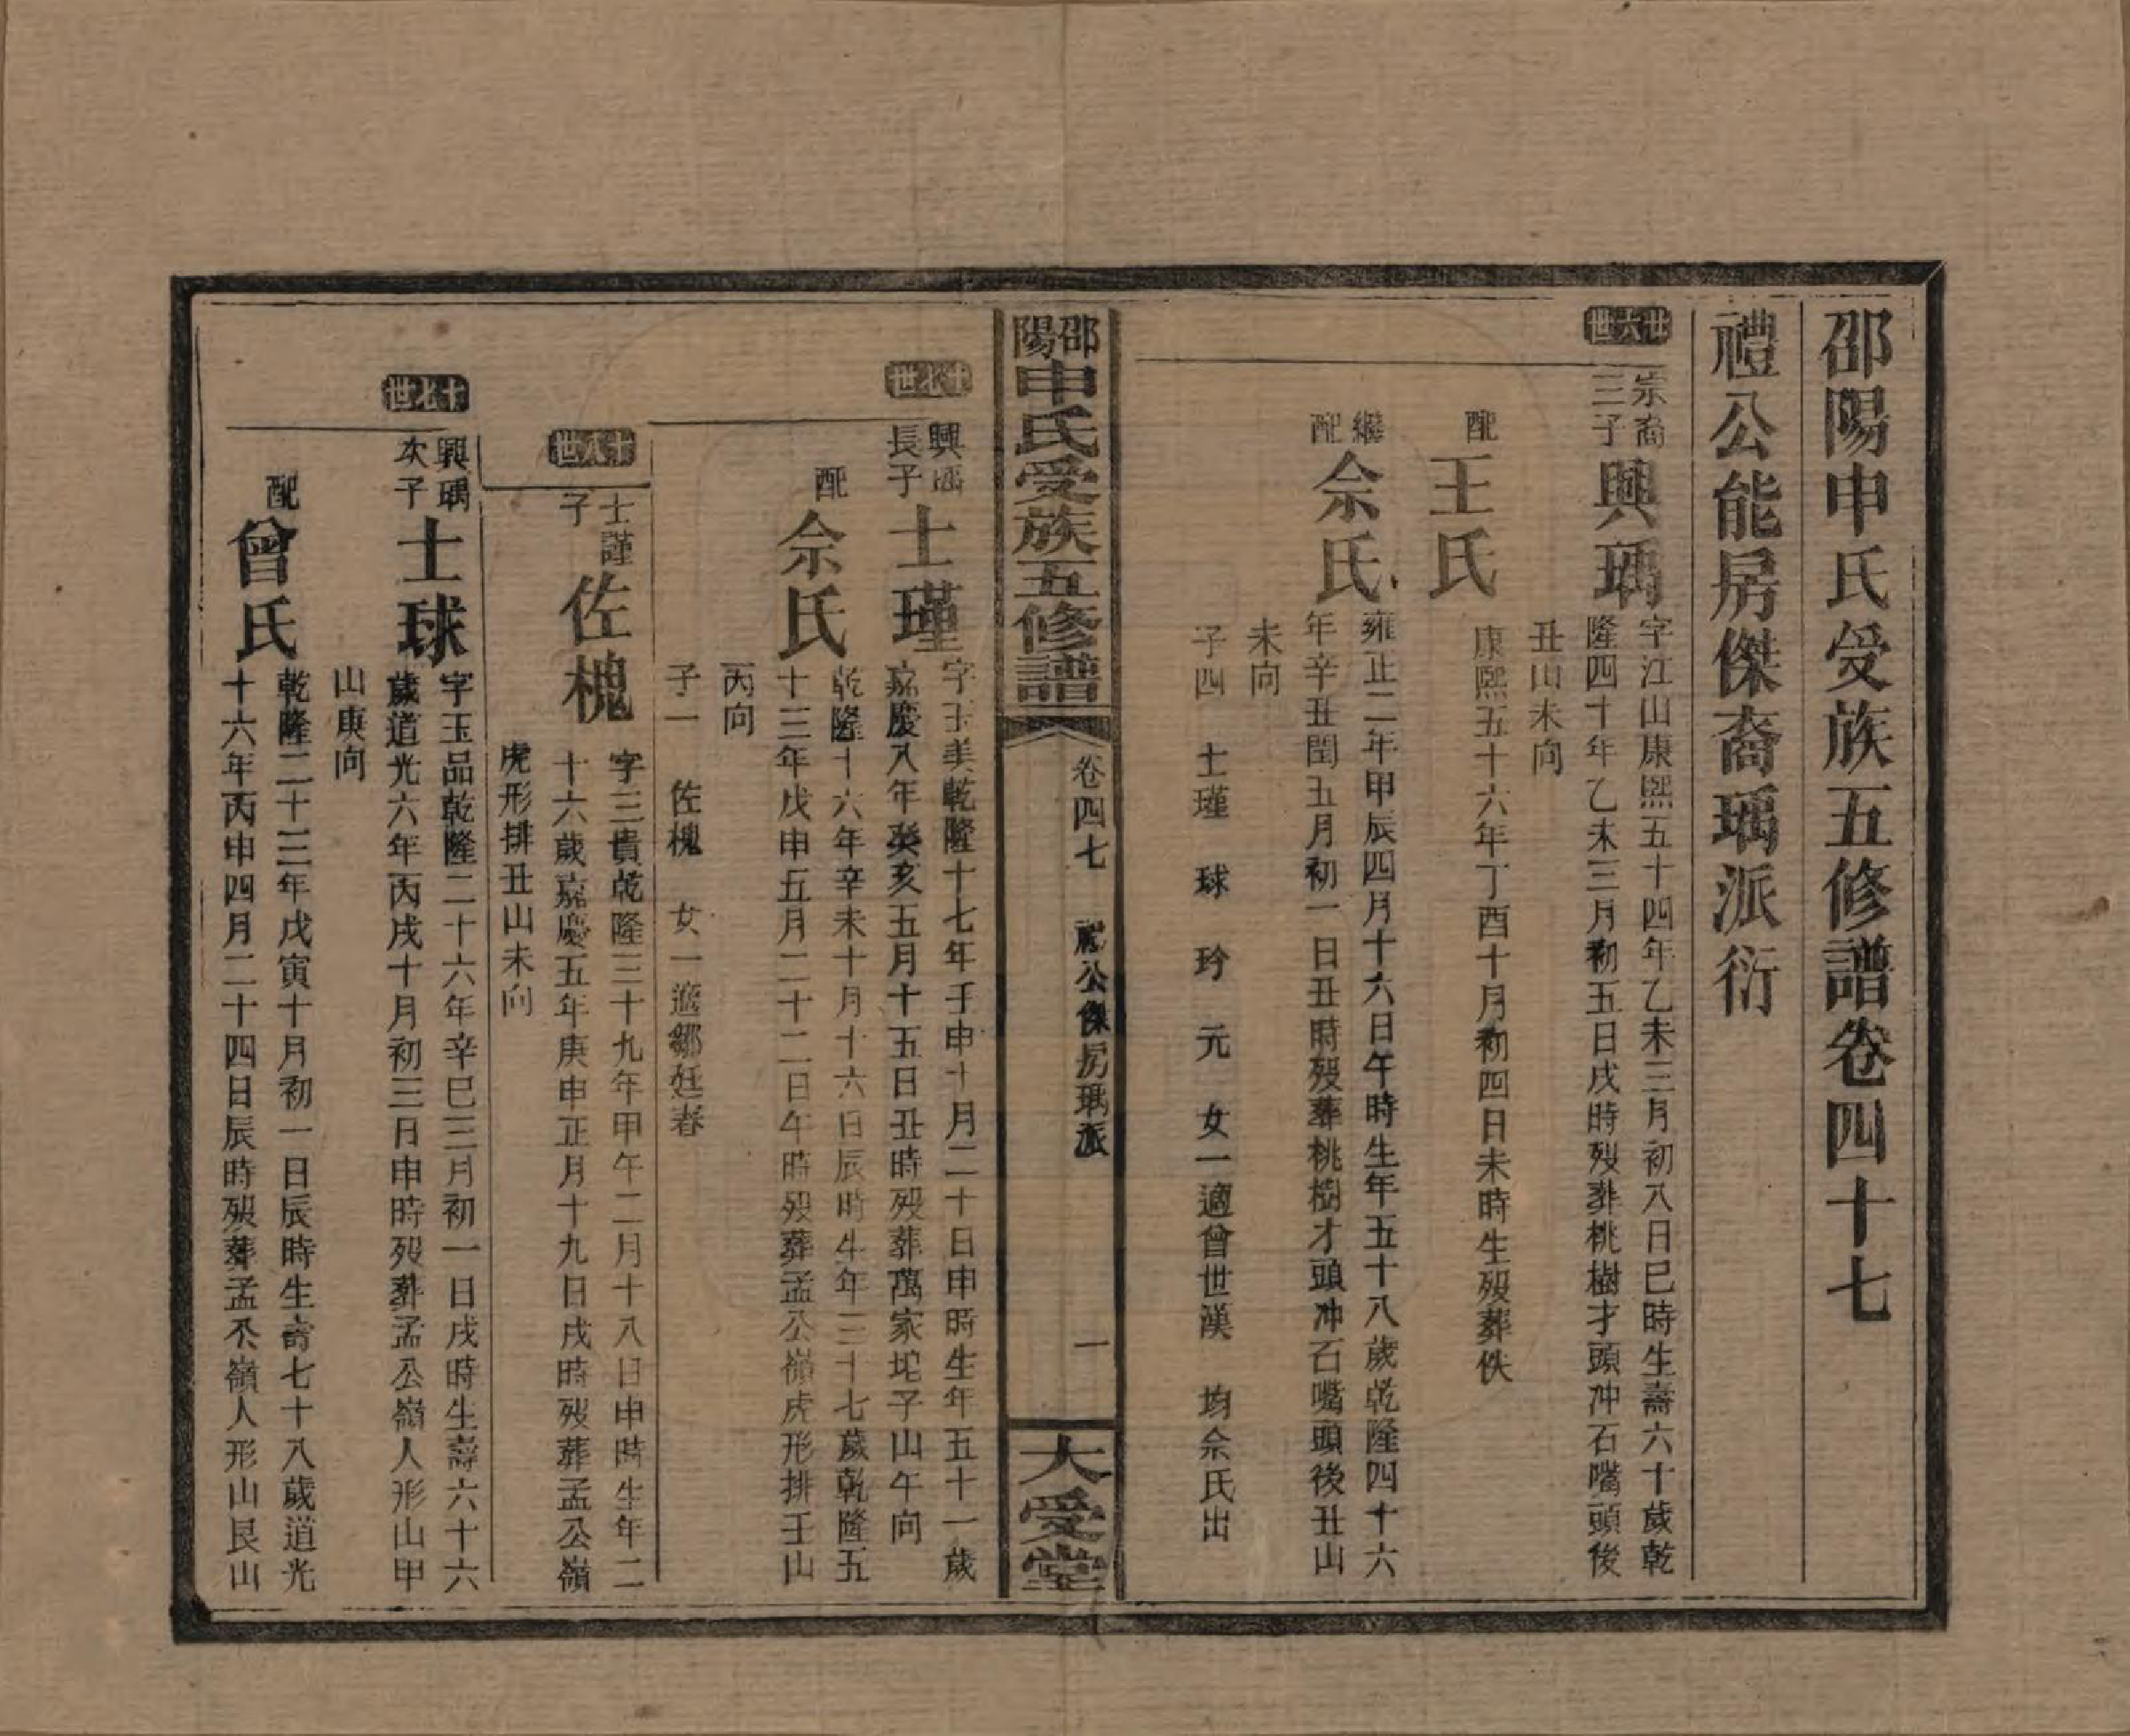 邵陽申氏受族五修譜卷四十七
禮公能房傑裔瑀派衍
廿六世
宗裔三子
興瑀
字江山康熙五十四年乙未三月初八日巳時生壽六十歲乾
隆四十年乙未三月初五日戌時歿葬桃樹才頭冲石嘴頭後
丑山未向
配
王氏
康熙五十六年丁酉十月初四日未時生歿葬佚
繼配
佘氏
雍正二年甲辰四月十六日午時生年五十八歲乾隆四十六
年辛丑閏五月初一日丑時歿葬桃樹才頭冲石嘴頭後丑山
未向
子四 士瑾 球 玲 元 女一適曾世漢 均佘氏出
邵陽申氏受族五修譜
卷四七 禮公傑房瑀派
一
大受堂
十七世
興瑀長子
士瑾
字玉美乾隆十七年壬申十月二十日申時生年五十一歲
嘉慶八年癸亥五月十五日丑時歿葬萬家坨子山午向
配
佘氏
乾隆十六年辛未十月十六日辰時生年三十七歲乾隆五
十三年戊申五月二十二日午時歿葬孟公嶺虎形排壬山
丙向
子一 佐槐 女一適鄒廷春
十八世
士謹子
佐槐
字三貴乾隆三十九年甲午二月十八日申時生年二
十六歲嘉慶五年庚申正月十九日戌時歿葬孟公嶺
虎形排丑山未向
十七世
興瑀次子
士球
字玉品乾隆二十六年辛巳三月初一日戌時生壽六十六
歲道光六年丙戌十月初三日申時歿葬孟公嶺人形山甲
山庚向
配
曾氏
乾隆二十三年戊寅十月初一日辰時生壽七十八歲道光
十六年丙申四月二十四日辰時歿葬孟公嶺人形山艮山